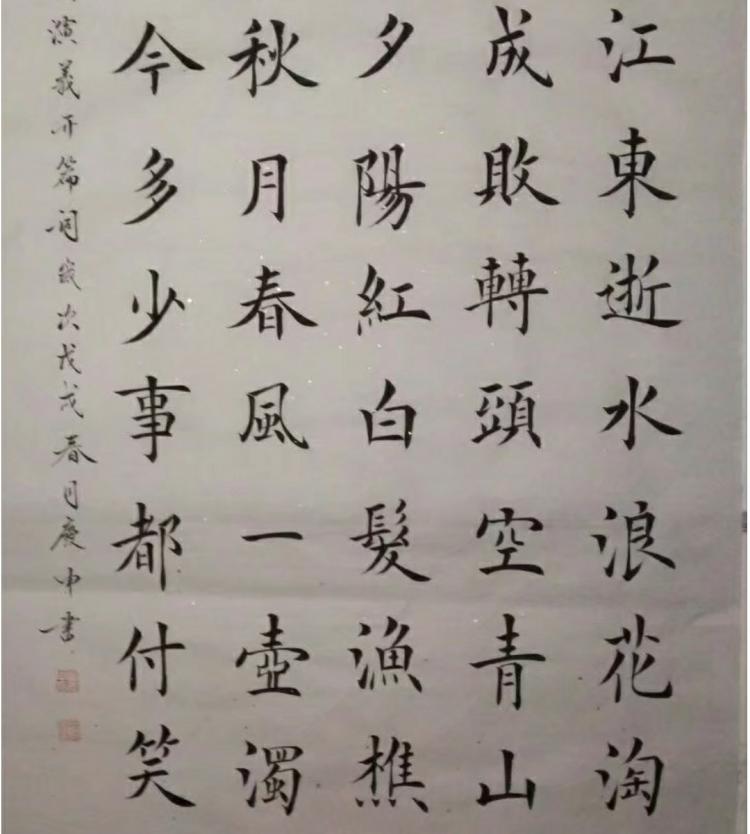 江東逝水浪花淘
成敗轉頭空青山
夕陽紅白髮漁樵
秋月春風一壺濁
今多少事都付笑
演義開篇詞歲次戊戌春月庚申書